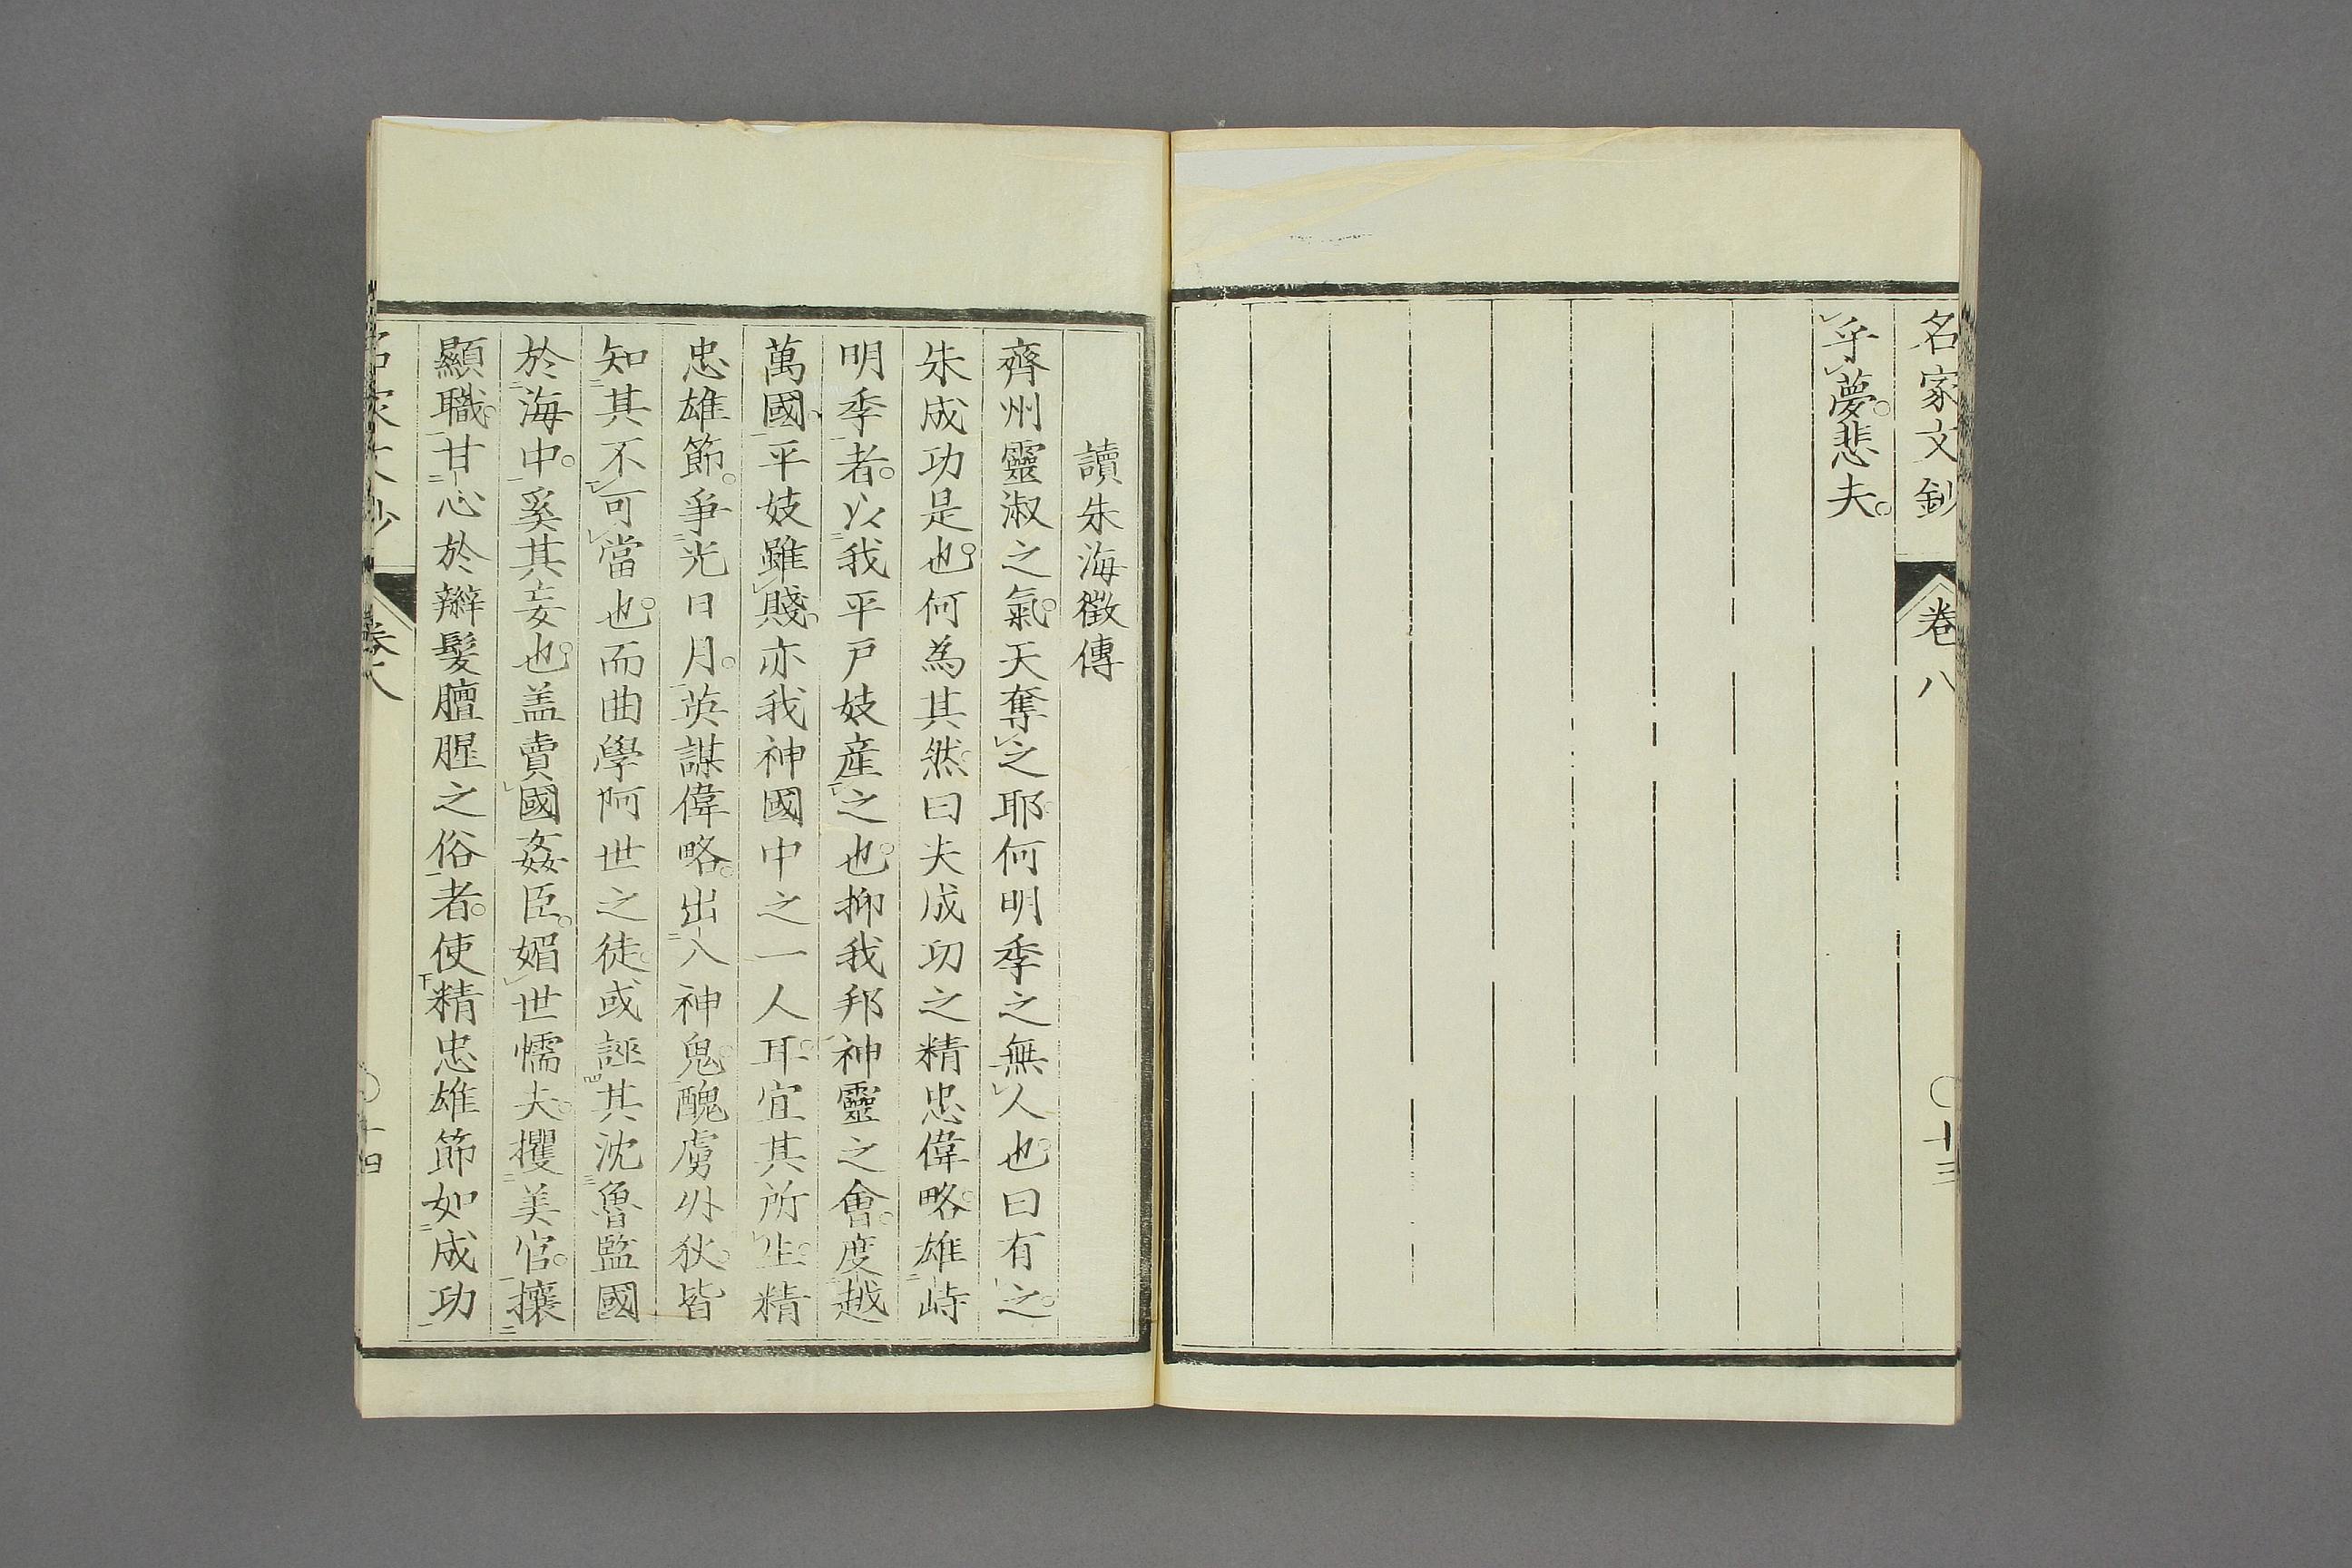 名家文鈔 卷八 〇十三
乎夢。悲夫。
讀朱海徵傳
齊州靈淑之氣。天奪之耶。何明季之無人也。曰有之。
朱成功是也。何為其然。曰夫成功之精忠偉略。雄峙
明季者。以我平戶妓產之也。抑我邦神靈之會。度越
萬國。平妓雖賤。亦我神國中之一人耳。宜其所生精
忠雄節。爭光日月。英謀偉略。出入神鬼。醜虜外狄。皆
知其不可當也。而曲學阿世之徒。或誣其沈魯監國
於海中。奚其妄也。盖賣國姦臣。媚世懦夫。攫美官。攘
顯職。甘心於辮髮膻腥之俗者。使精忠雄節如成功
名家文鈔 卷八 〇十四